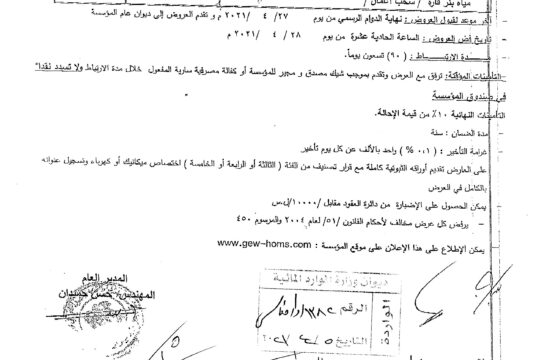 مياه بئر قارة / سحب أنقال /
آخر موعد لقبول العروض: نهاية الدوام الرسمي من يوم ٢٧ / ٤ / ٢٠٢١ م و تقدم العروض إلى ديوان عام المؤسسة
تاريخ فض العروض: الساعة الحادية عشرة من يوم ٢٨ / ٤ / ٢٠٢١ م
مدة الارتباط : (٩٠) تسعون يوماً.
التأمينات المؤقتة: ترفق مع العرض وتقدم بموجب شيك مصدق و مجير للمؤسسة أو كفالة مصرفية سارية المفعول خلال مدة الارتباط ولا تسدد نقدا"
في صندوق المؤسسة
التأمينات النهائية ١٠٪ من قيمة الإحالة.
مدة الضمان : سنة
غرامة التأخير : (٠,١ %) واحد بالألف عن كل يوم تأخير
على العارض تقديم أوراقه الثبوتية كاملة مع قرار تصنيف من الفئة ( الثالثة أو الرابعة أو الخامسة ) اختصاص ميكانيك أو كهرباء وتسجيل عنوانه
بالكامل في العرض
يمكن الحصول على الإضبارة من دائرة العقود مقابل /١٠٠٠٠/ل.س
– يرفض كل عرض مخالف لأحكام القانون /٥١/ لعام ٢٠٠٤ والمرسوم ٤٥٠
يمكن الإطلاع على هذا الإعلان على موقع المؤسسة : www.gew-homs.com
المدير العام
المهندس. حسن حميدان
ديوان وزارة الموارد المائية
الواردة:
الرقم
التاريخ